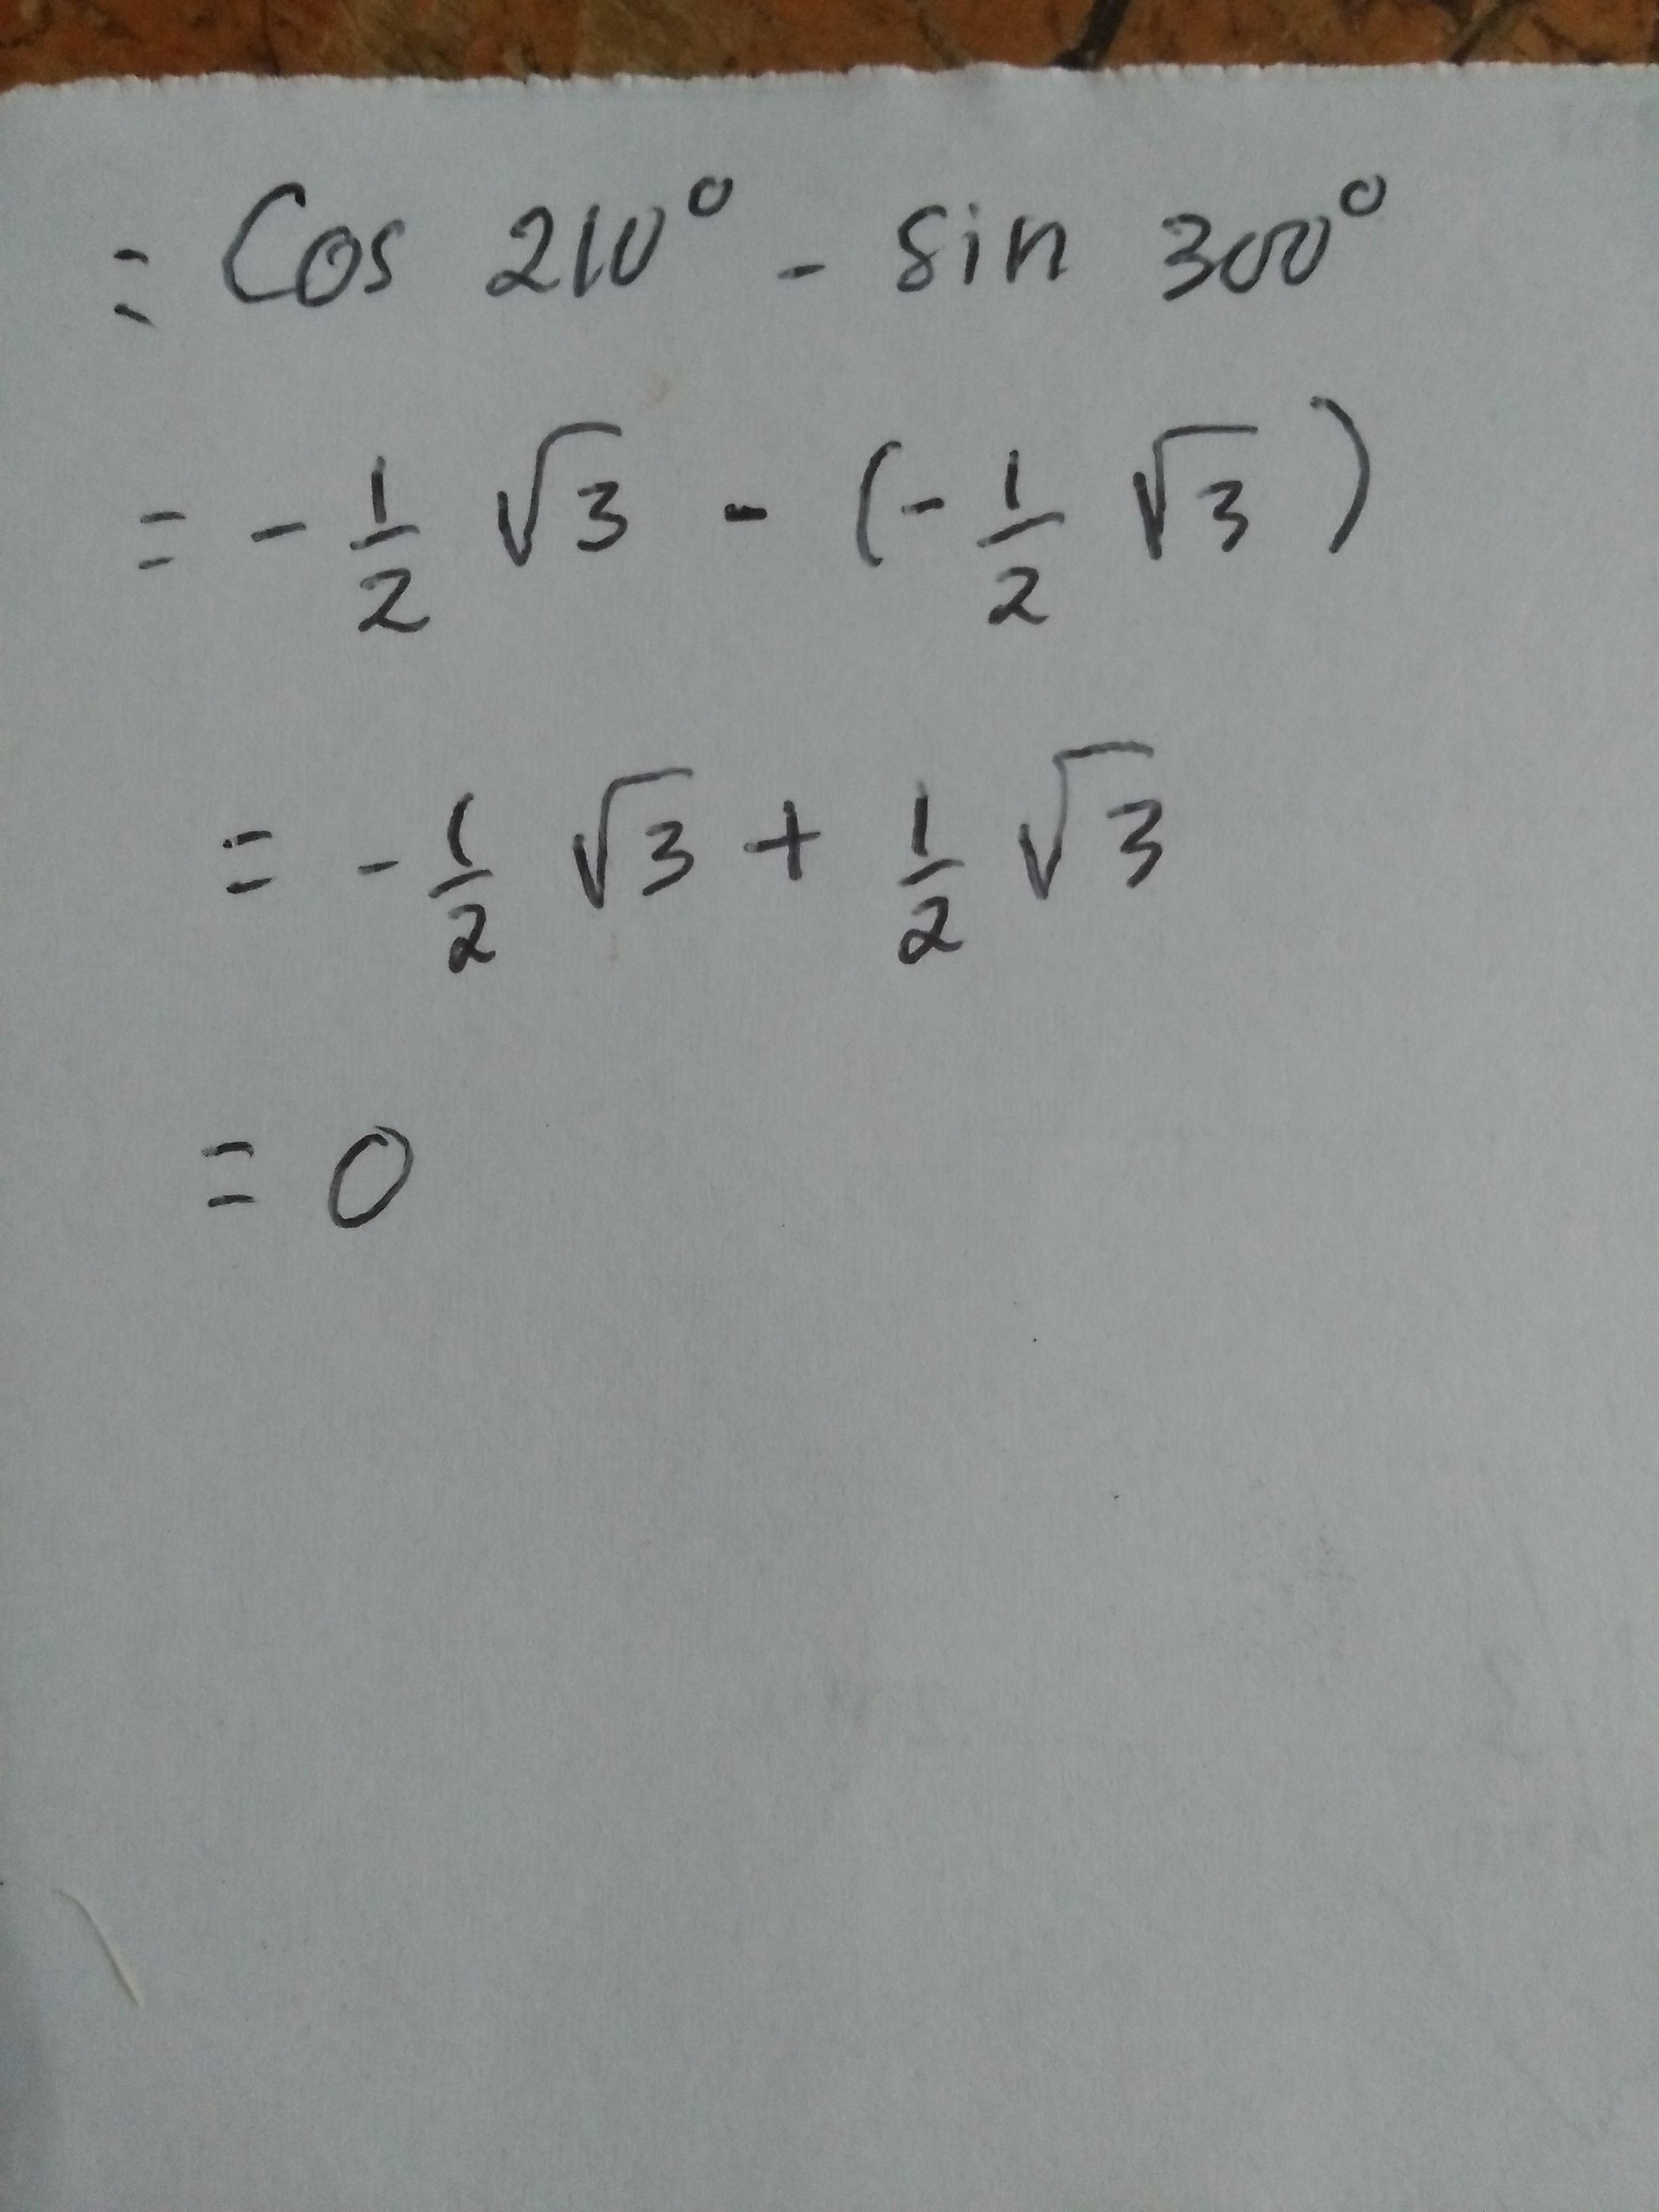 = Cos 210° - sin 300°
= - 1/2 √3 - (- 1/2 √3)
= - 1/2 √3 + 1/2 √3
= 0